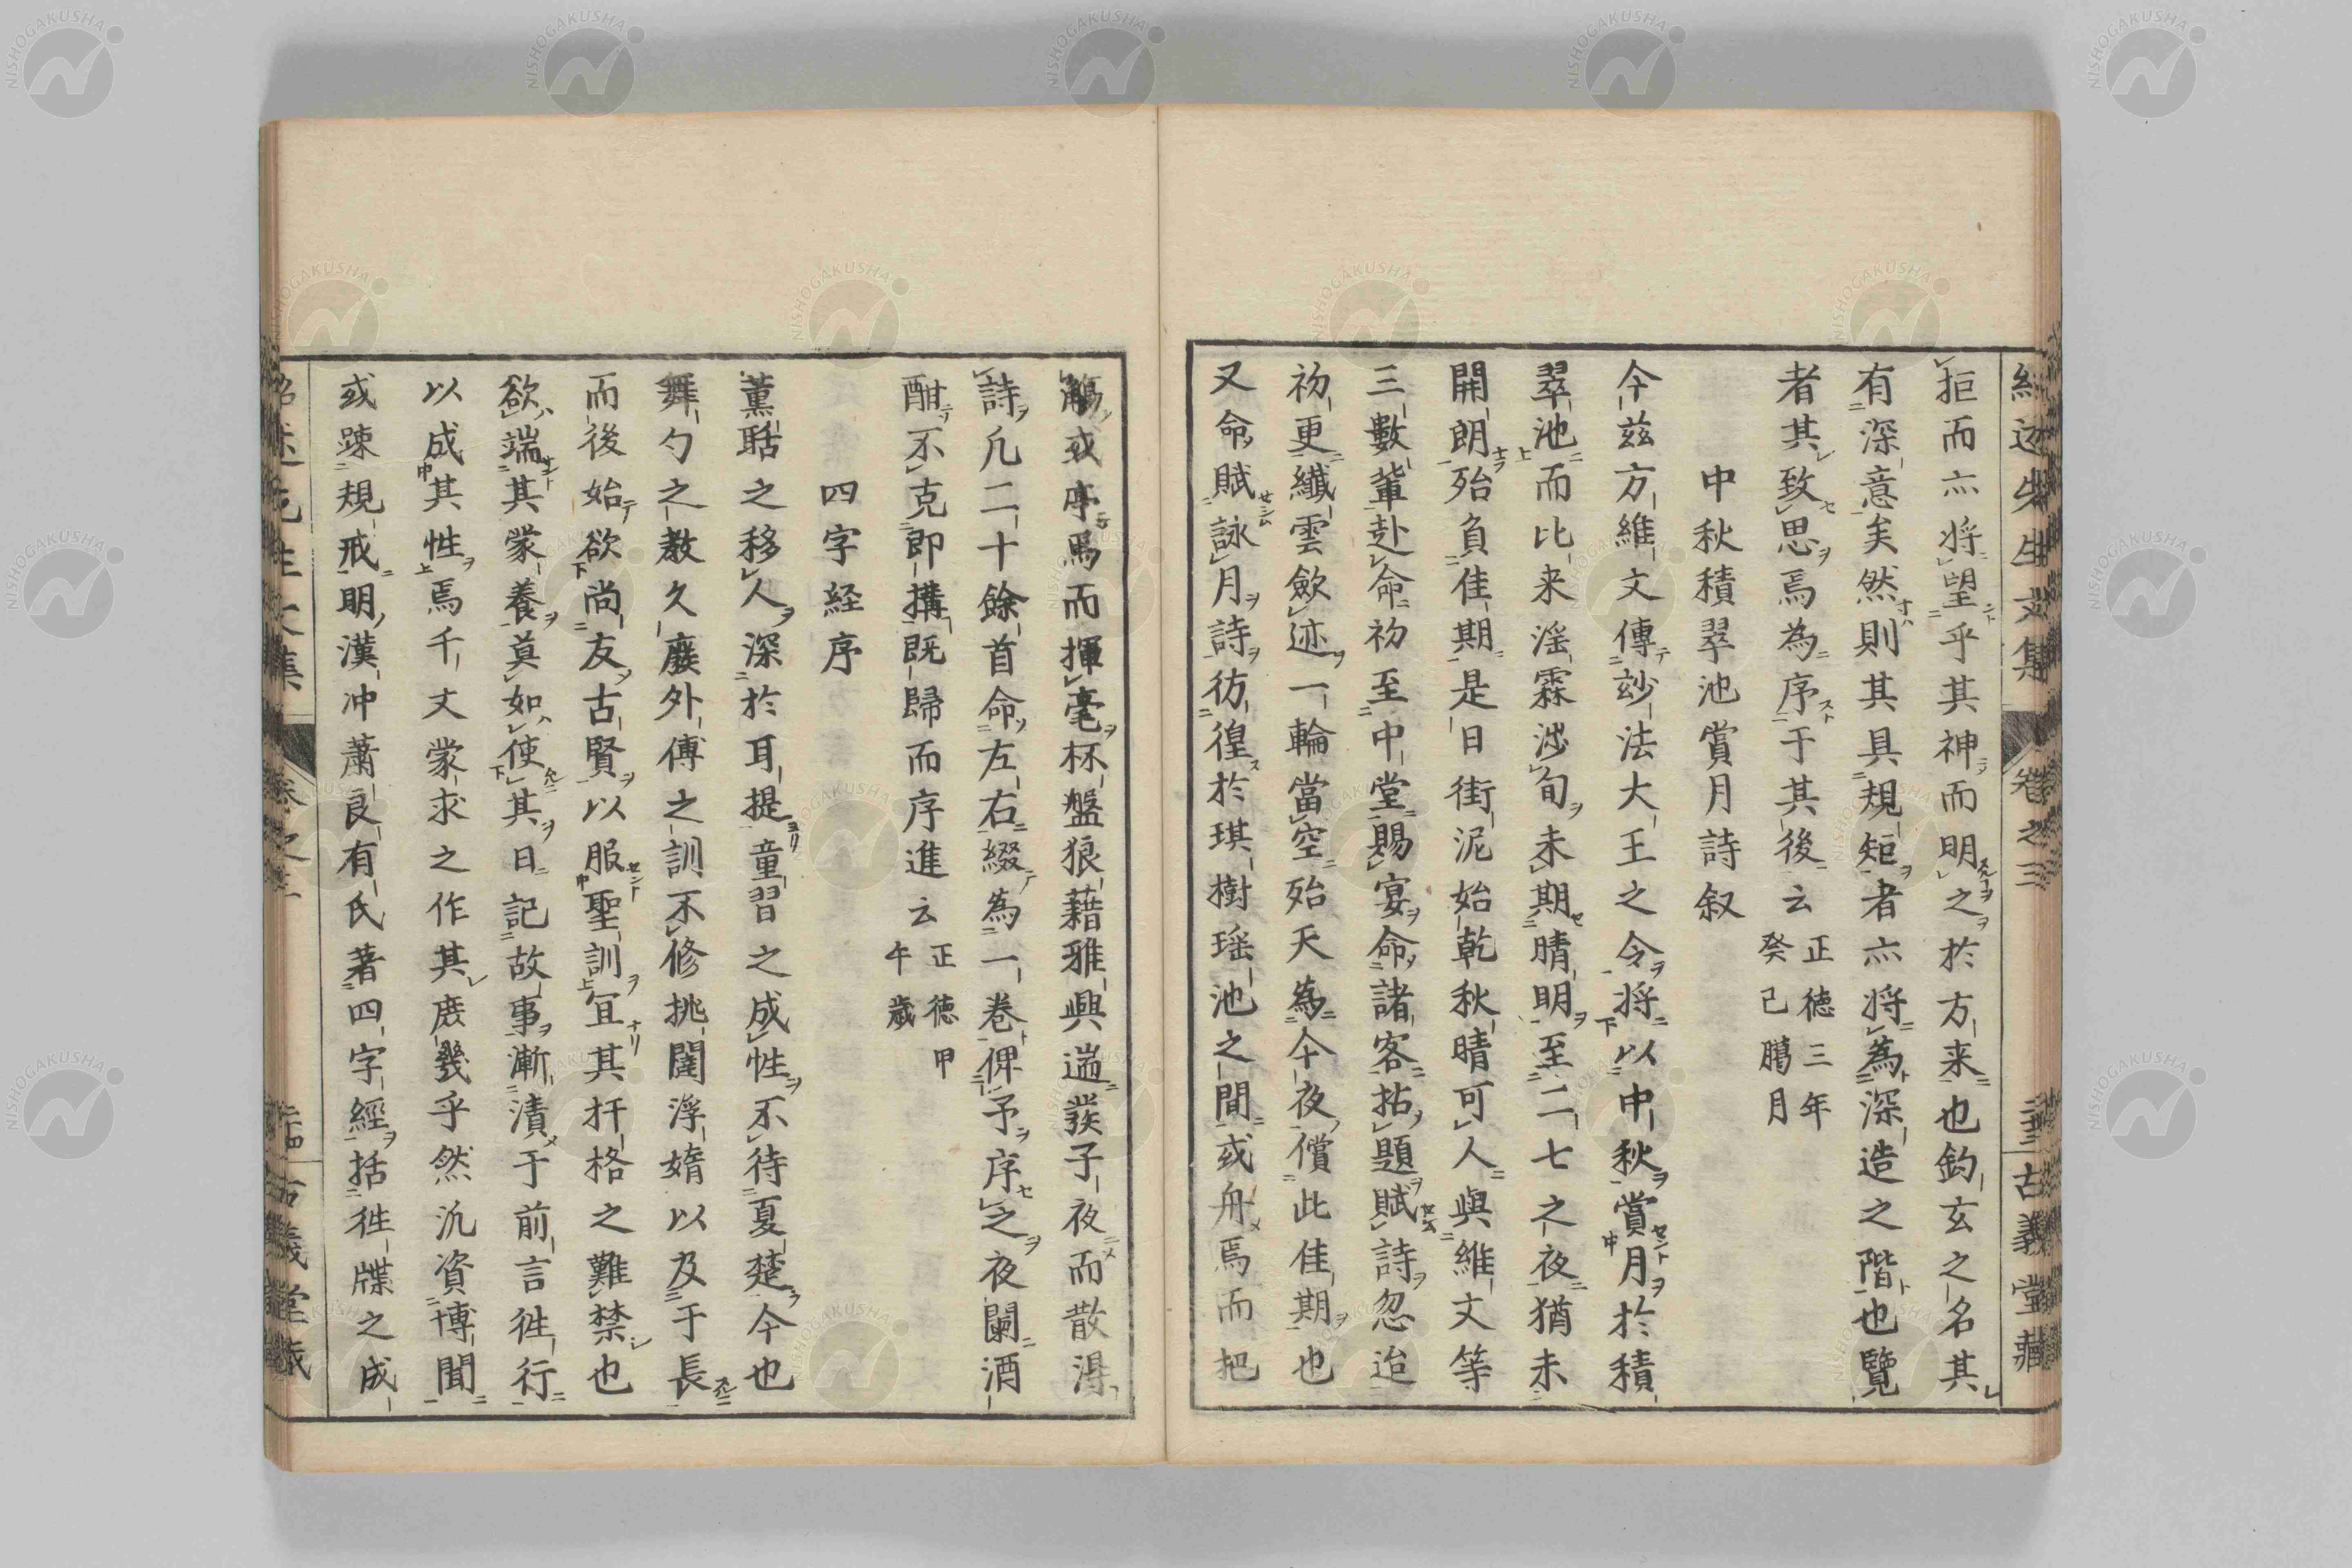 紹述先生文集 卷之三 古義堂藏
拒而亦将望乎其神而明之於方来也鈞玄之名其
有深意矣然則其具規矩者亦将為深造之階也覽
者其致思焉為序于其後云 正徳三年
癸己臈月
中秋積翠池賞月詩叙
今茲方維文傳玅法大王之令将以中秋賞月於積
翠池而比来滛霖涉旬未期晴明至二七之夜猶未
開朗殆負佳期是日街泥始乾秋晴可人與維文等
三數輩赴命初至中堂賜宴命諸客拈題賦詩忽迨
初更纖雲歛迹一輪當空殆天為今夜償此佳期也
又命賦詠月詩彷徨於琪樹瑶池之間或舟焉而把
觴或亭焉而揮毫杯盤狼藉雅興遄發子夜而散淂
詩凢二十餘首命左右綴為一卷俾予序之夜闌酒
酣不克即搆既歸而序進云 正徳甲
午歳
四字経序
薫聒之移人深於耳提童習之成性不待夏楚今也
舞勺之教久廢外傅之訓不修挑闥浮媠以及于長
而後始欲尚友古賢以服聖訓冝其扞格之難禁也
欲端其蒙養莫如使其日記故事漸漬于前言徃行
以成其性焉千文蒙求之作其庶幾乎然汎資博聞
或踈規戒明漢冲蕭良有氏著四字經括徃牒之成
紹述先生文集 卷之三 古義堂藏